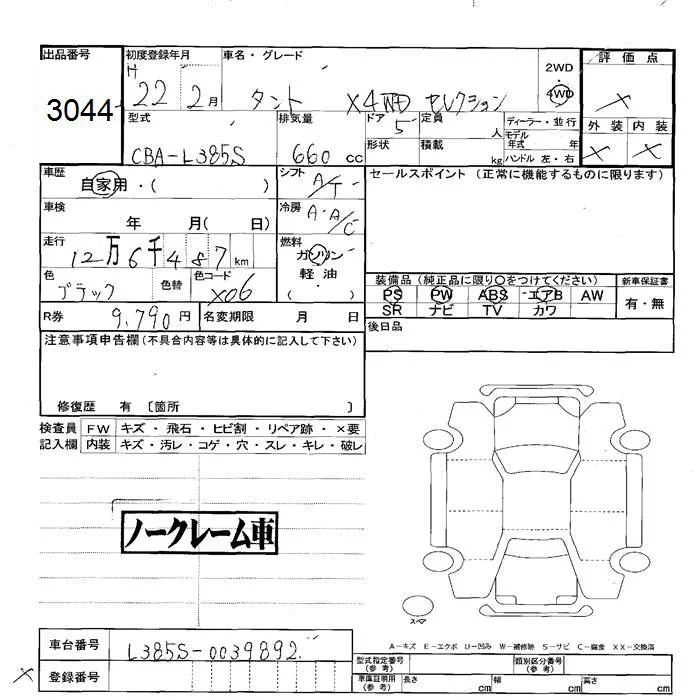 出品番号 初度登録年月 車名・グレード 2WD ・ 4WD 評価点
3044 H 22 2月 タント X4WD セレクション ×
型式 排気量 ドア 5 定員 人 ディーラー・並行 外装 内装
CBA-L385S 660 cc 形状 積載 kg モデル年式 年 ハンドル 左・右 × ×
車歴 自家用・( ) シフト A/T セールスポイント (正常に機能するものに限ります)
車検 年 月( 日) 冷房 A・A/C
走行 12万6千487km 燃料 ガソリン
軽油
色 ブラック 色替 色コード X06 ( ・ ) 装備品 (純正品に限り○をつけてください) 新車保証書
PS PW ABS エアB AW 有・無
R券 9,790円 名変期限 月 日 SR ナビ TV カワ
後日品
注意事項申告欄 (不具合内容等は具体的に記入して下さい)
修復歴 有 〔箇所 〕
検査員 FW キズ・飛石・ヒビ割・リペア跡・×要
記入欄 内装 キズ・汚レ・コゲ・穴・スレ・キレ・破レ
ノークレーム車
スペア
A-キズ E-エクボ U-凹み W-補修跡 S-サビ C-腐食 XX-交換済
車台番号 L385S-0039892
型式指定番号 (参考) 類別区分番号 (参考)
× 登録番号
車庫証明用 (参考) 長さ cm 幅 cm 高さ cm